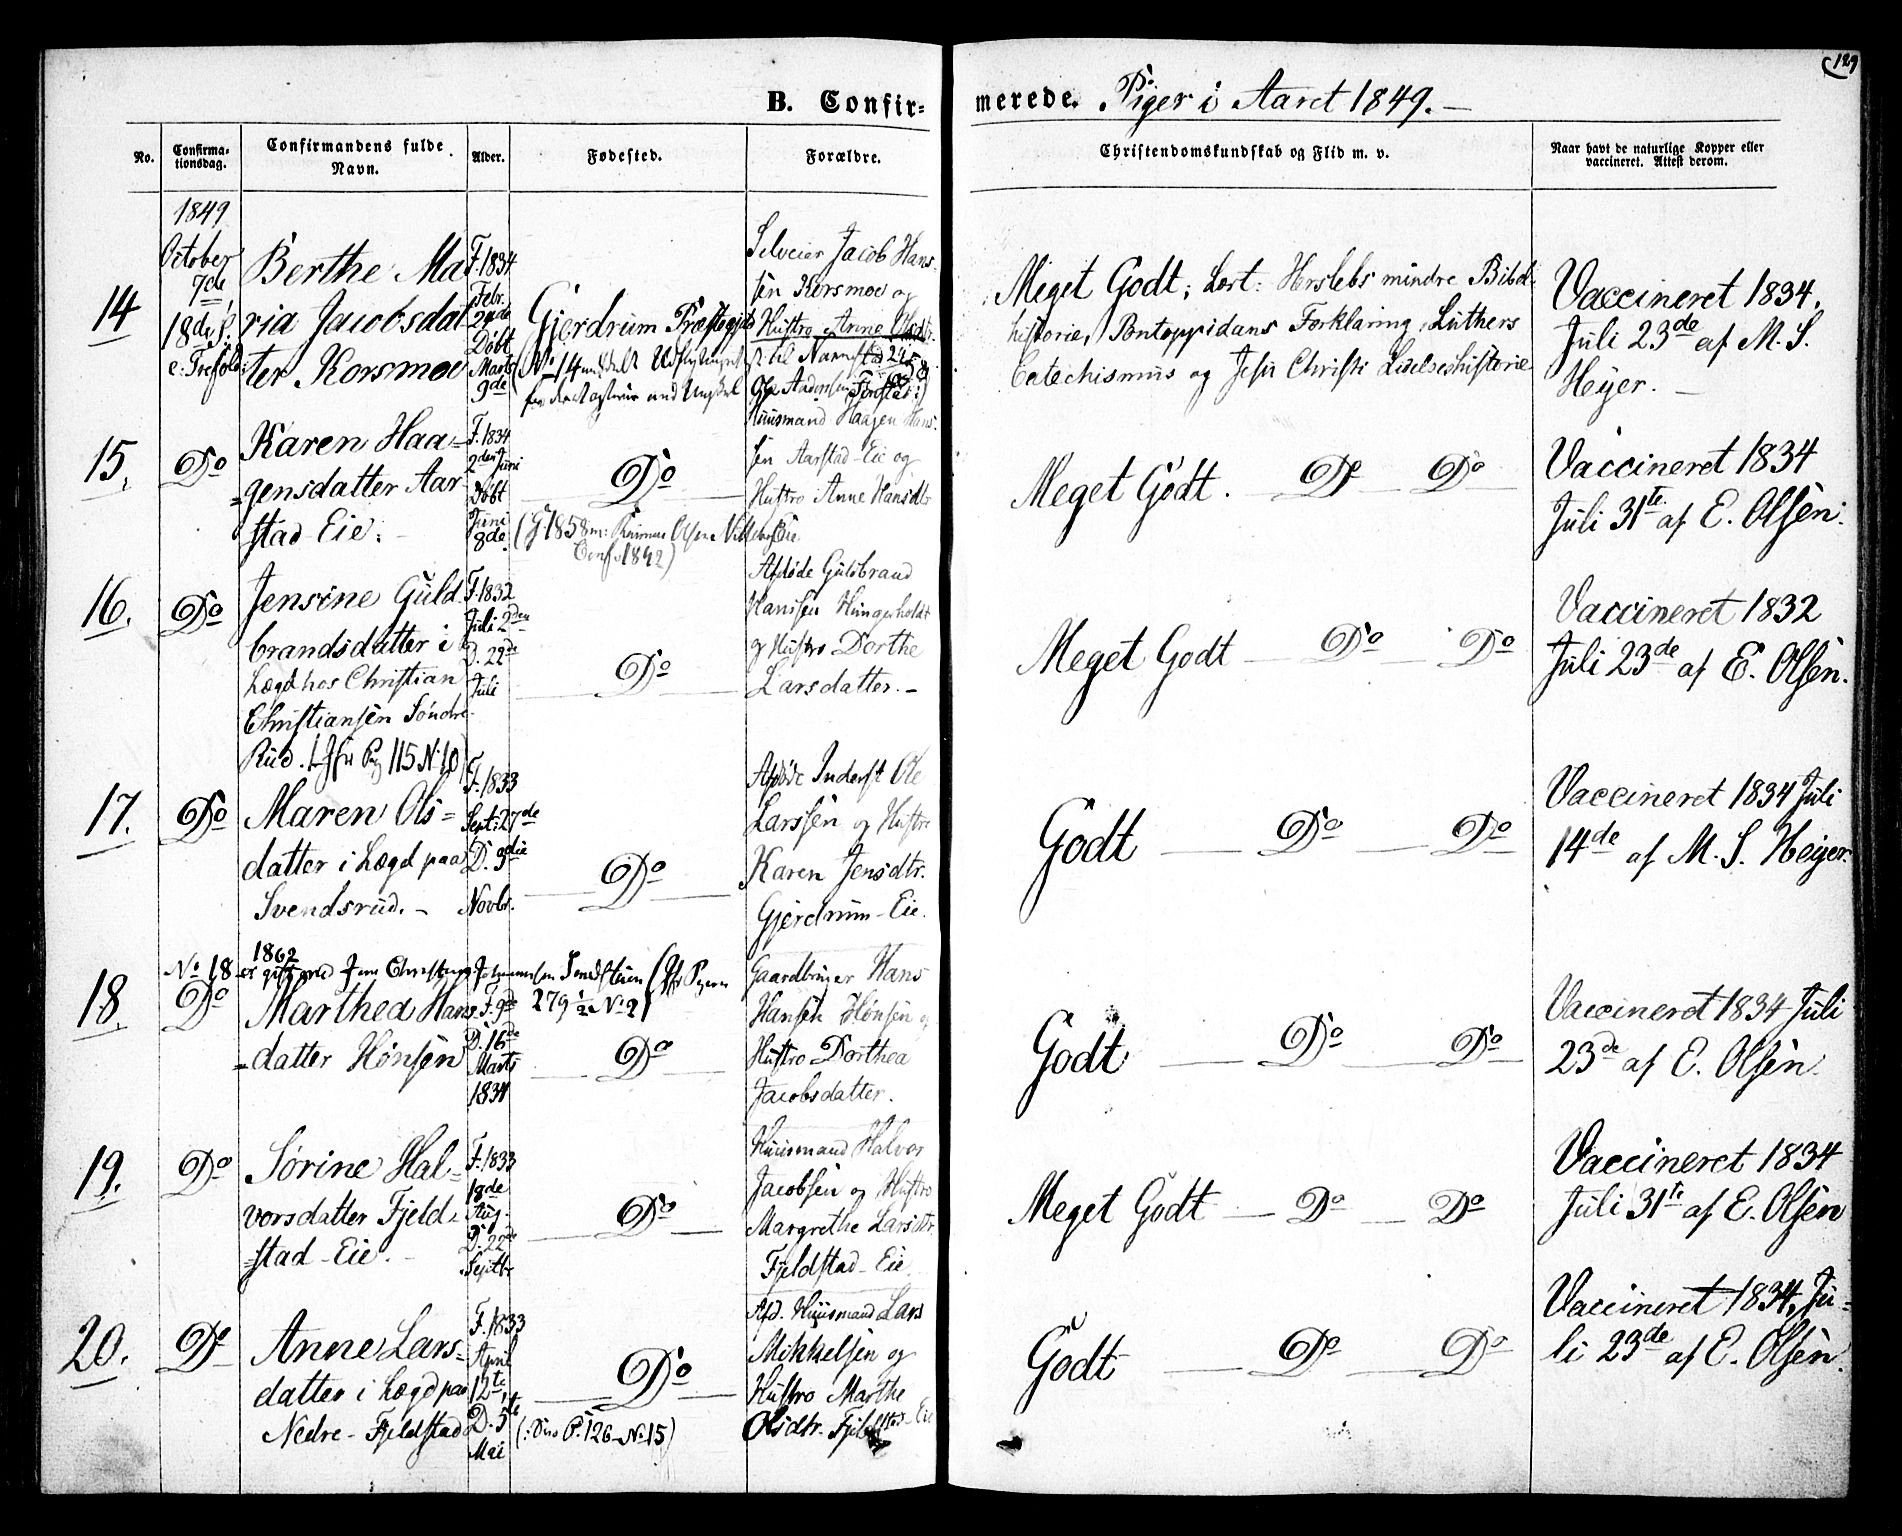 129
B. Confir-
merede. Piger i Aaret 1849.
No.
Confirma-
tionsdag.
Confirmandens fulde
Navn.
Alder.
Fødested.
Forældre.
Christendomskundskab og Flid m. v.
Naar havt de naturlige Kopper eller
vaccineret. Attest derom.
14
1849
October
7de
18de S.
e. Trefold:
Berthe Ma
ria Jacobsdat
ter Korsmoe
F. 1834
Febr.
Døbt
Marts
9de
Gjerdrum Præstegjeld
(No 14
Selveier Jacob Hans-
sen Korsmoe og
Hustro Anne Olsdtr
Meget Godt; Lært: Herslebs mindre Bibel-
historie, Pontoppidans Forklaring, Luthers
Catechismus og Jesu Christi Lidelseshistorie
Vaccineret 1834.
Juli 23de af M. S.
Heyer. -
15.
Do
Karen Haa-
gensdatter Aar
stad-Eie.
F. 1834
2den Juni
Døbt
Juni
8de
Do
(G. 1858 m:
Conf. 1842)
Huusmand Haagen Hans-
sen Aarstad-Eie og
Hustro Anne Hansdtr
Meget Godt. Do Do
Vaccineret 1834
Juli 31te af E. Olsen.
16.
Do
Jensine Guld
brandsdatter i
Lægd hos Christian
Christiansen Søndre
Rud. (Jfr Pag 115 No 10)
F. 1832
Juli 2den
D. 22de
Juli
Do
Afdøde Guldbrand
Hanssen Hungerholdt
og Hustro Dorthe
Larsdatter. -
Meget Godt Do Do
Vaccineret 1832
Juli 23de af E. Olsen.
17.
Do
Maren Ols-
datter i Lægd paa
Svendsrud. -
F. 1833
Sept: 27de
D. 3die
Novbr.
Do
Afdøde Inderst Ole
Larssen og Hustro
Karen Jensdtr.
Gjerdrum-Eie.
Godt Do Do
Vaccineret 1834 Juli
14de af M. S. Heyer.
No 18 er gift 1862 med Jens Christian Johannesen
279 1/2 No 21
18.
Do
Marthea Hans-
datter Hønsen
F. 9de
D. 16de
Marts
1834
Do
Gaardbruger Hans
Hansen Hønsen og
Hustro Dorthea
Jacobsdatter.
Godt Do Do
Vaccineret 1834 Juli
23de af E. Olsen.
19.
Do
Sørine Hal-
vorsdatter Fjeld-
stad-Eie. -
F. 1833
18de
Aug.
D. 22de
Septbr
Do
Huusmand Halvor
Jacobsen og Hustro
Margrethe Larsdtr.
Fjeldstad-Eie.
Meget Godt Do Do
Vaccineret 1834
Juli 31te af E. Olsen
20.
Do
Anne Lars-
datter i Lægd paa
Nedre-Fjeldstad
F. 1833
April
12te
D. 5te
Mai
Do
P. 126 No 15)
Afd. Huusmand Lars
Mikkelsen og
Hustro Marthe
Olsdtr. Fjeldstad-Eie
Godt Do Do
Vaccineret 1834, Ju-
li 23de af E. Olsen.